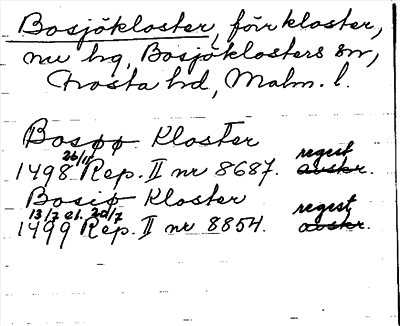 Bosjökloster, förr kloster,
nu hg, Bosjöklosters sn,
Frosta hd, Malm. l.
Bosøø Kloster
26/11 regest
1498 Rep. II nr 8687. avskr.
Bosiø Kloster
13/7 el. 20/7 regest
1499 Rep. II nr 8854. avskr.